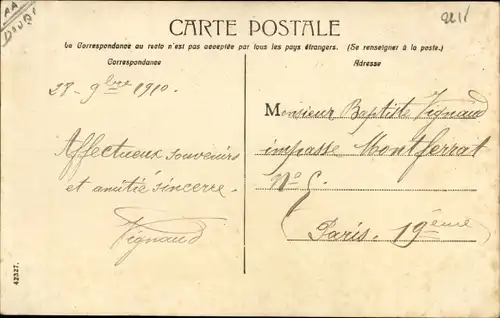 AA
DOUAI
2211
CARTE POSTALE
La Correspondance au recto n'est pas acceptée par tous les pays étrangers. (Se renseigner à la poste.)
Correspondance
28 - 9bre 1910.
Affectueux souvenirs
et amitié sincerre.
Vignaud
Adresse
Monsieur Baptiste Vignaud
impasse Montferrat
No 5.
Paris. 19ème
42327.